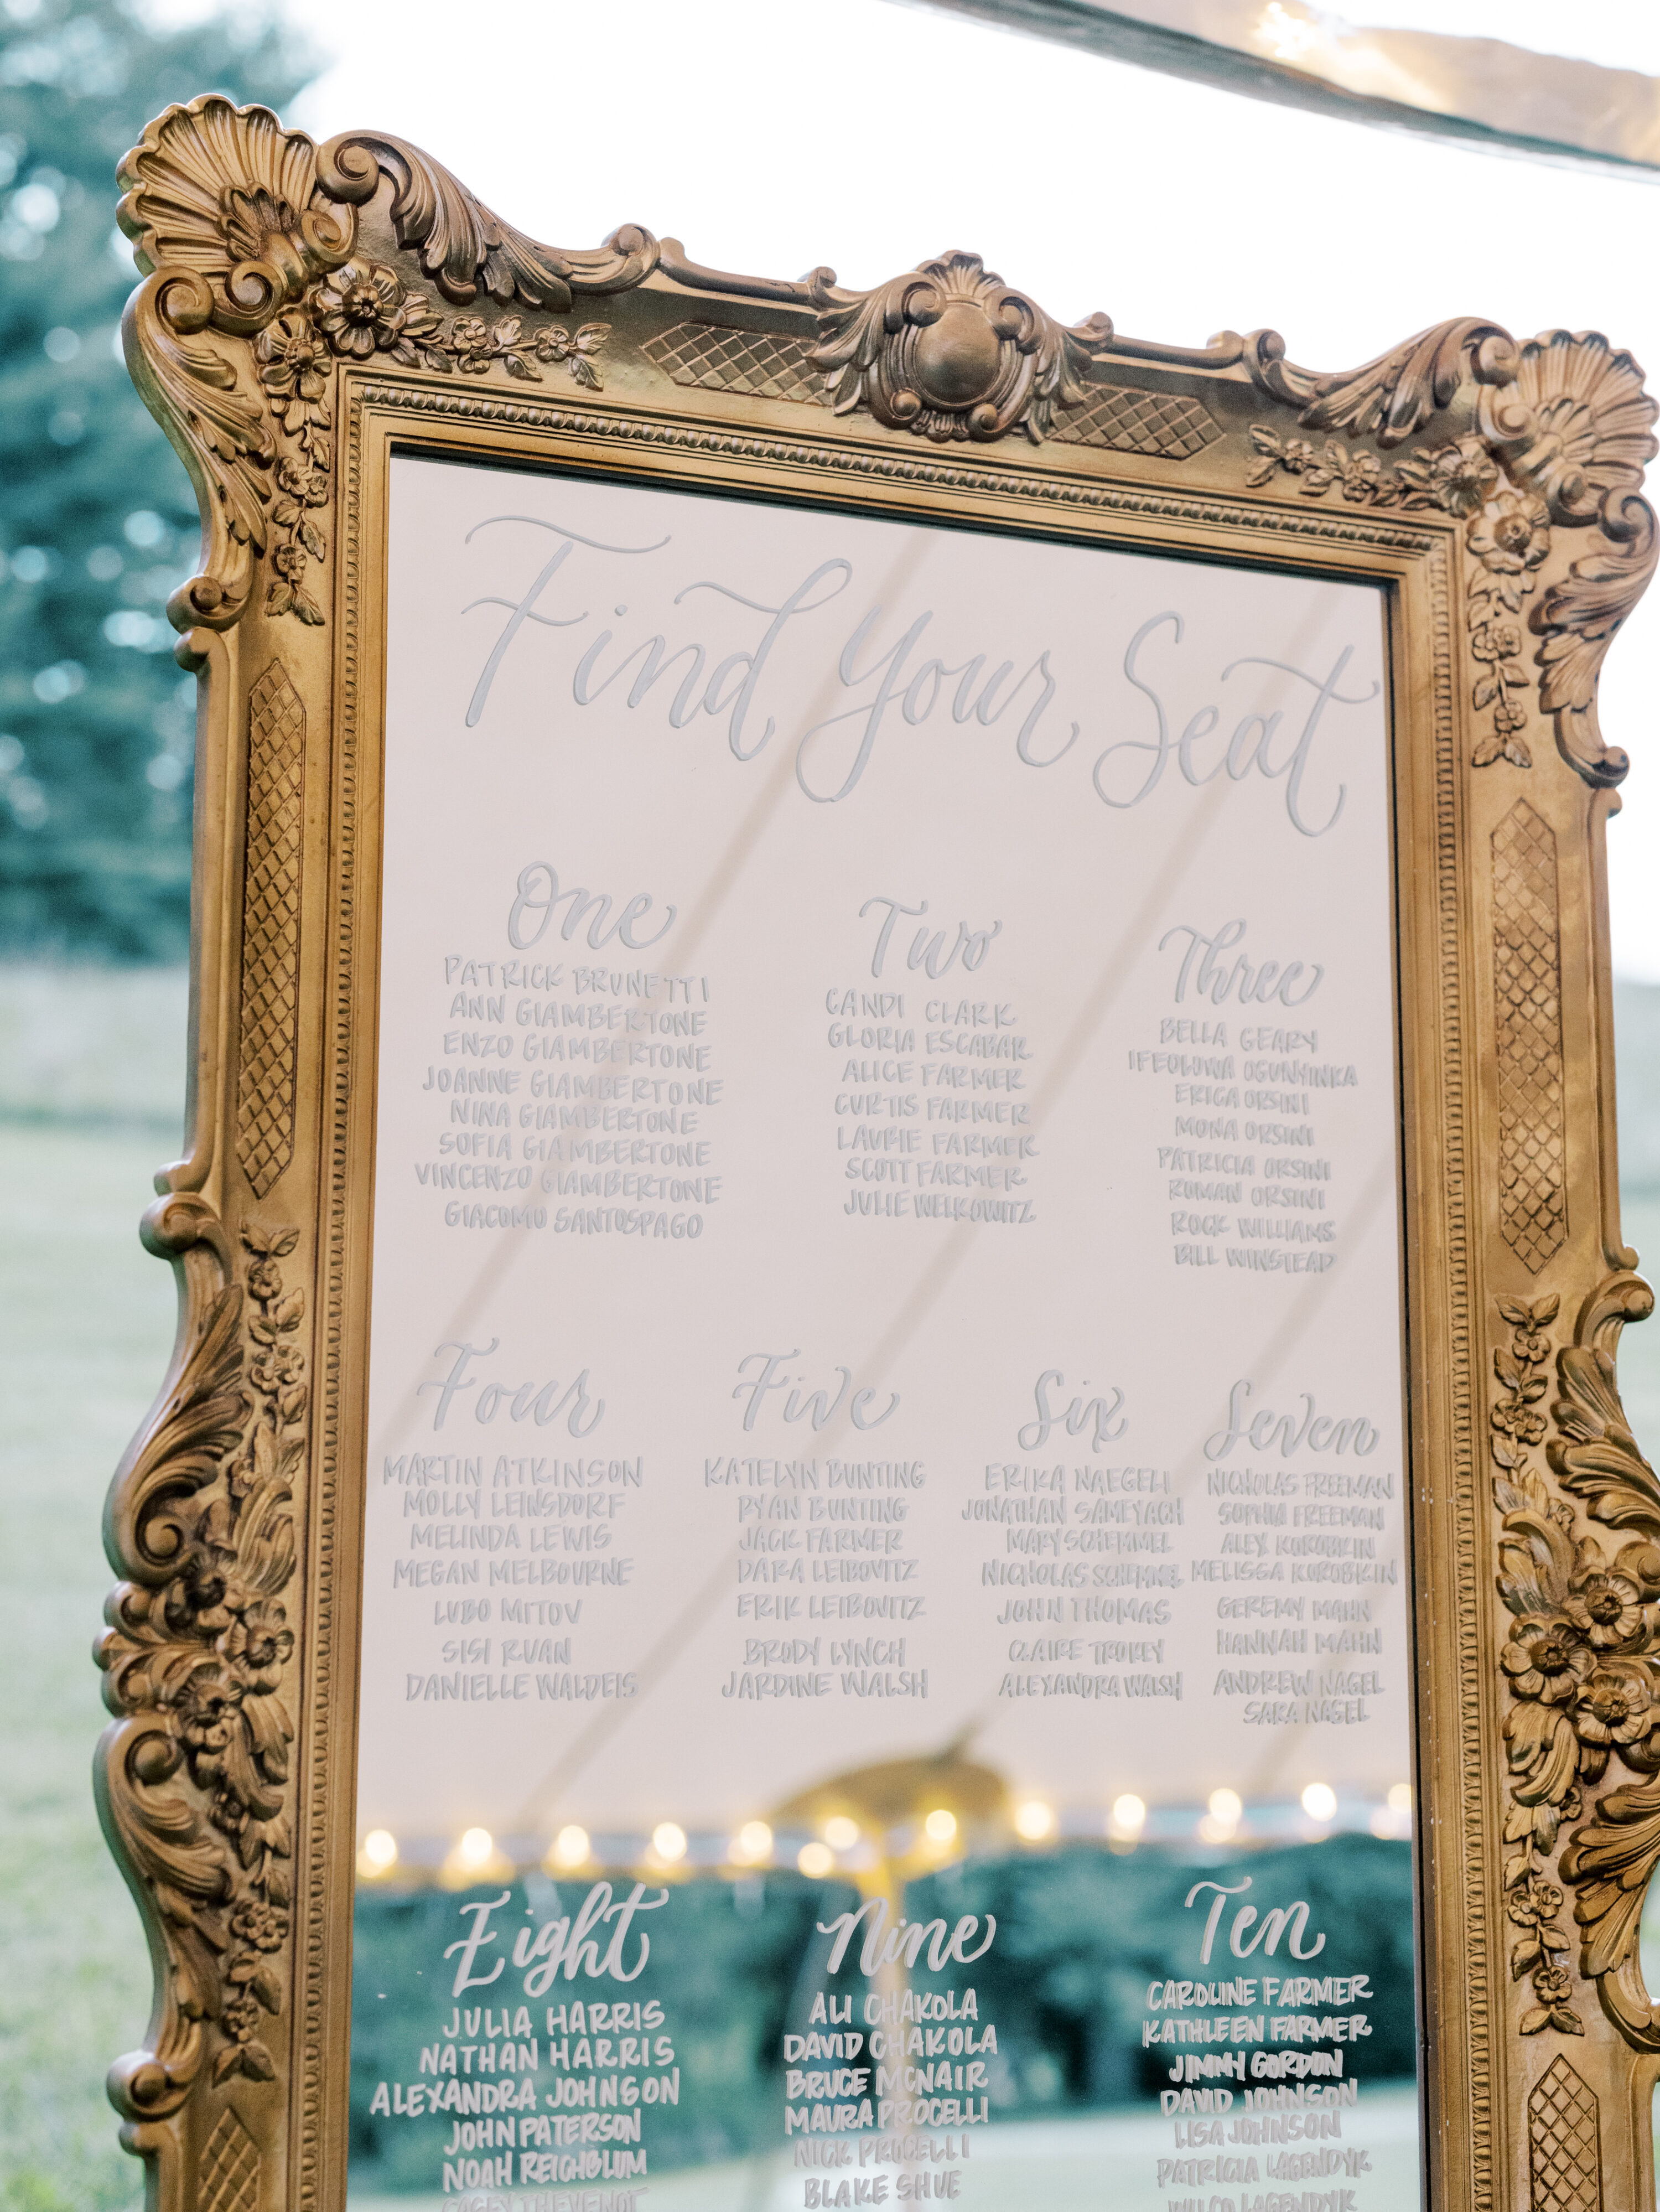 Find Your Seat
One
PATRICK BRUNETTI
ANN GIAMBERTONE
ENZO GIAMBERTONE
JOANNE GIAMBERTONE
NINA GIAMBERTONE
SOFIA GIAMBERTONE
VINCENZO GIAMBERTONE
GIACOMO SANTOSPAGO
Two
CANDI CLARK
GLORIA ESCABAR
ALICE FARMER
CURTIS FARMER
LAURIE FARMER
SCOTT FARMER
JULIE WELKOWITZ
Three
BELLA GEARY
IFEOLUWA OGUNYINKA
ERICA ORSINI
MONA ORSINI
PATRICIA ORSINI
ROMAN ORSINI
ROCK WILLIAMS
BILL WINSTEAD
Four
MARTIN ATKINSON
MOLLY LEINSDORF
MELINDA LEWIS
MEGAN MELBOURNE
LUBO MITOV
SISI RUAN
DANIELLE WALDEIS
Five
KATELYN BUNTING
RYAN BUNTING
JACK FARMER
DARA LEIBOVITZ
ERIK LEIBOVITZ
BRODY LYNCH
JARDINE WALSH
Six
ERIKA NAEGELI
JONATHAN SAMEYACH
MARY SCHEMMEL
NICHOLAS SCHEMMEL
JOHN THOMAS
CLAIRE
ALEXANDRA WALSH
Seven
NICHOLAS FREEMAN
SOPHIA FREEMAN
ALEX KOROBKIN
MELISSA KOROBKIN
GEREMY MAHN
HANNAH MAHN
ANDREW NAGEL
SARA NAGEL
Eight
JULIA HARRIS
NATHAN HARRIS
ALEXANDRA JOHNSON
JOHN PATERSON
NOAH REICHBLUM
CASEY THEVENOT
Nine
ALI CHAKOLA
DAVID CHAKOLA
BRUCE MCNAIR
MAURA PROCELLI
NICK PROCELLI
BLAKE SHUE
Ten
CAROLINE FARMER
KATHLEEN FARMER
JIMMY GORDON
DAVID JOHNSON
LISA JOHNSON
PATRICIA LAGENDYK
WILCO LAGENDYK